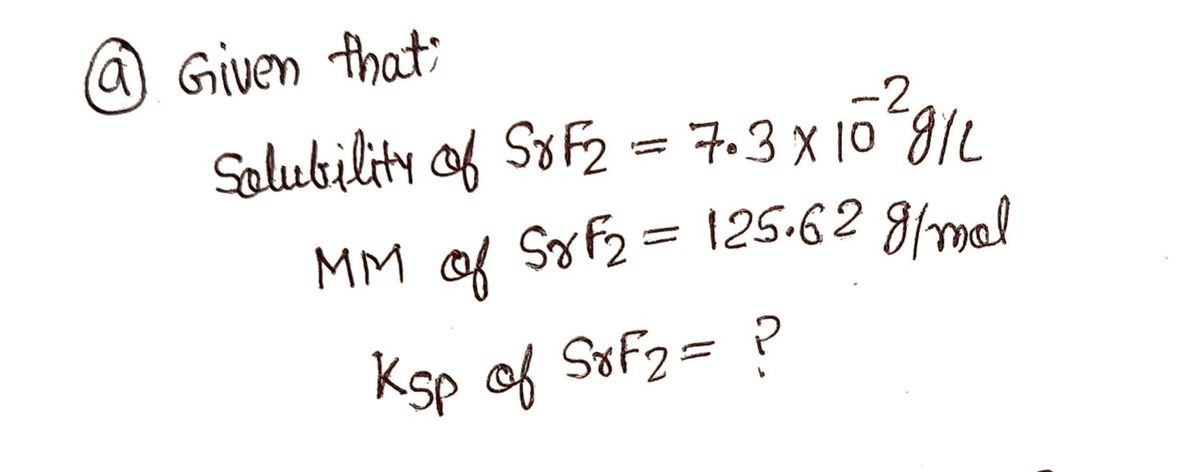 (a) Given that;
Solubility of SrF2 = 7.3 x 10^-2 g/L
MM of SrF2 = 125.62 g/mol
Ksp of SrF2 = ?